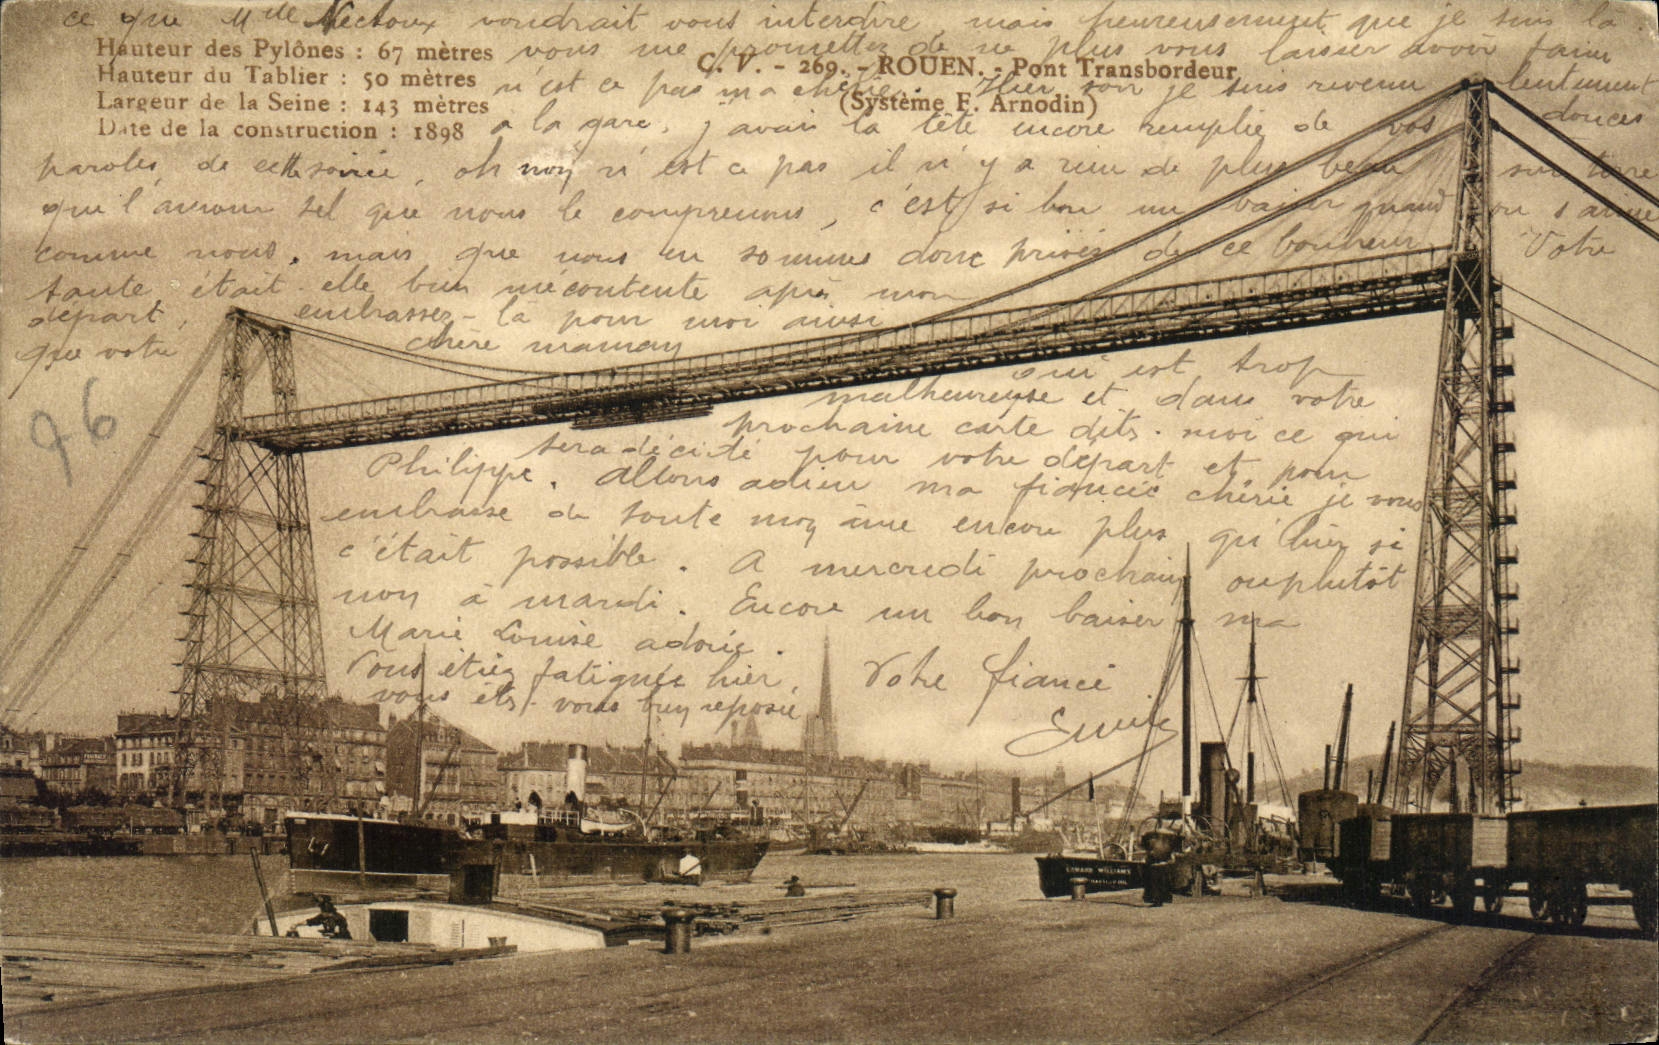 ce que Mlle Nectoux voudrait vous interdire mais heureusement que je suis la
Hauteur des Pylônes : 67 mètres
Hauteur du Tablier : 50 mètres
Largeur de la Seine : 143 mètres
Date de la construction : 1898
C. V. - 269. - ROUEN. - Pont Transbordeur
(Système F. Arnodin)
vous me promettez de ne plus vous laisser avoir faim
n'est ce pas ma chérie. Hier soir je suis revenu lentement
a la gare, j'avais la tête encore remplie de vos douces
paroles de cette soirée, oh non n'est ce pas il n'y a rien de plus beau sur terre
que l'amour tel que nous le comprenons, c'est si bon un baiser quand on s'aime
comme nous, mais que nous en sommes donc privés de ce bonheur Votre
tante était-elle bien mécontente après mon
départ, embrassez-la pour moi ainsi
que votre chère maman
qui est trop
malheureuse et dans votre
prochaine carte dits-moi ce qui
sera décidé pour votre départ et pour
Philippe. Allons adieu ma fiancée chérie je vous
embrasse de toute mon âme encore plus qu'hier si
c'était possible. A mercredi prochain ou plutôt
non à mardi. Encore un bon baiser ma
Marie Louise adorée.
Vous étiez fatiguée hier,
vous ets-vous bien reposée
Votre fiancé
96
EDWARD WILLIAMS